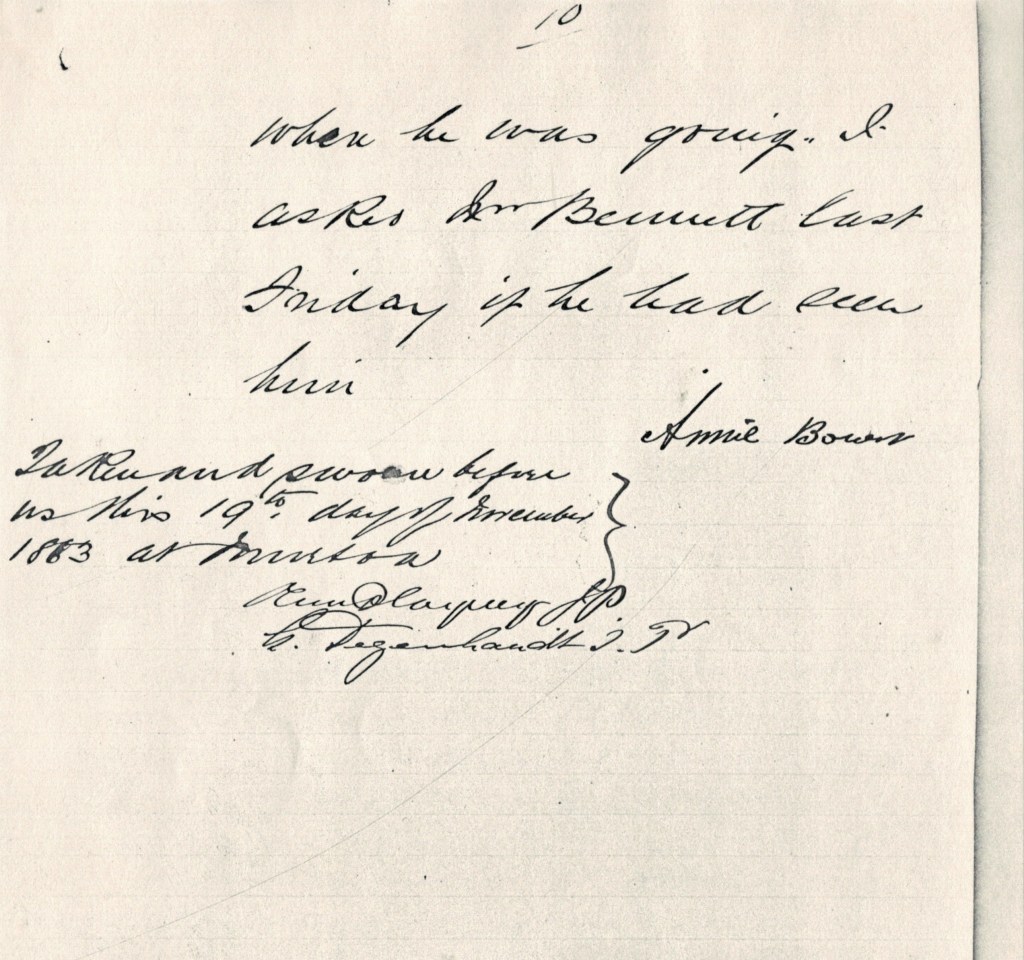 10
when he was going. I
asked Mr Bennett last
Friday if he had seen
him
Annie Bower
Taken and sworn before
us this 19th day of November
1883 at Murtoa
JP.
G. Degenhardt J. P